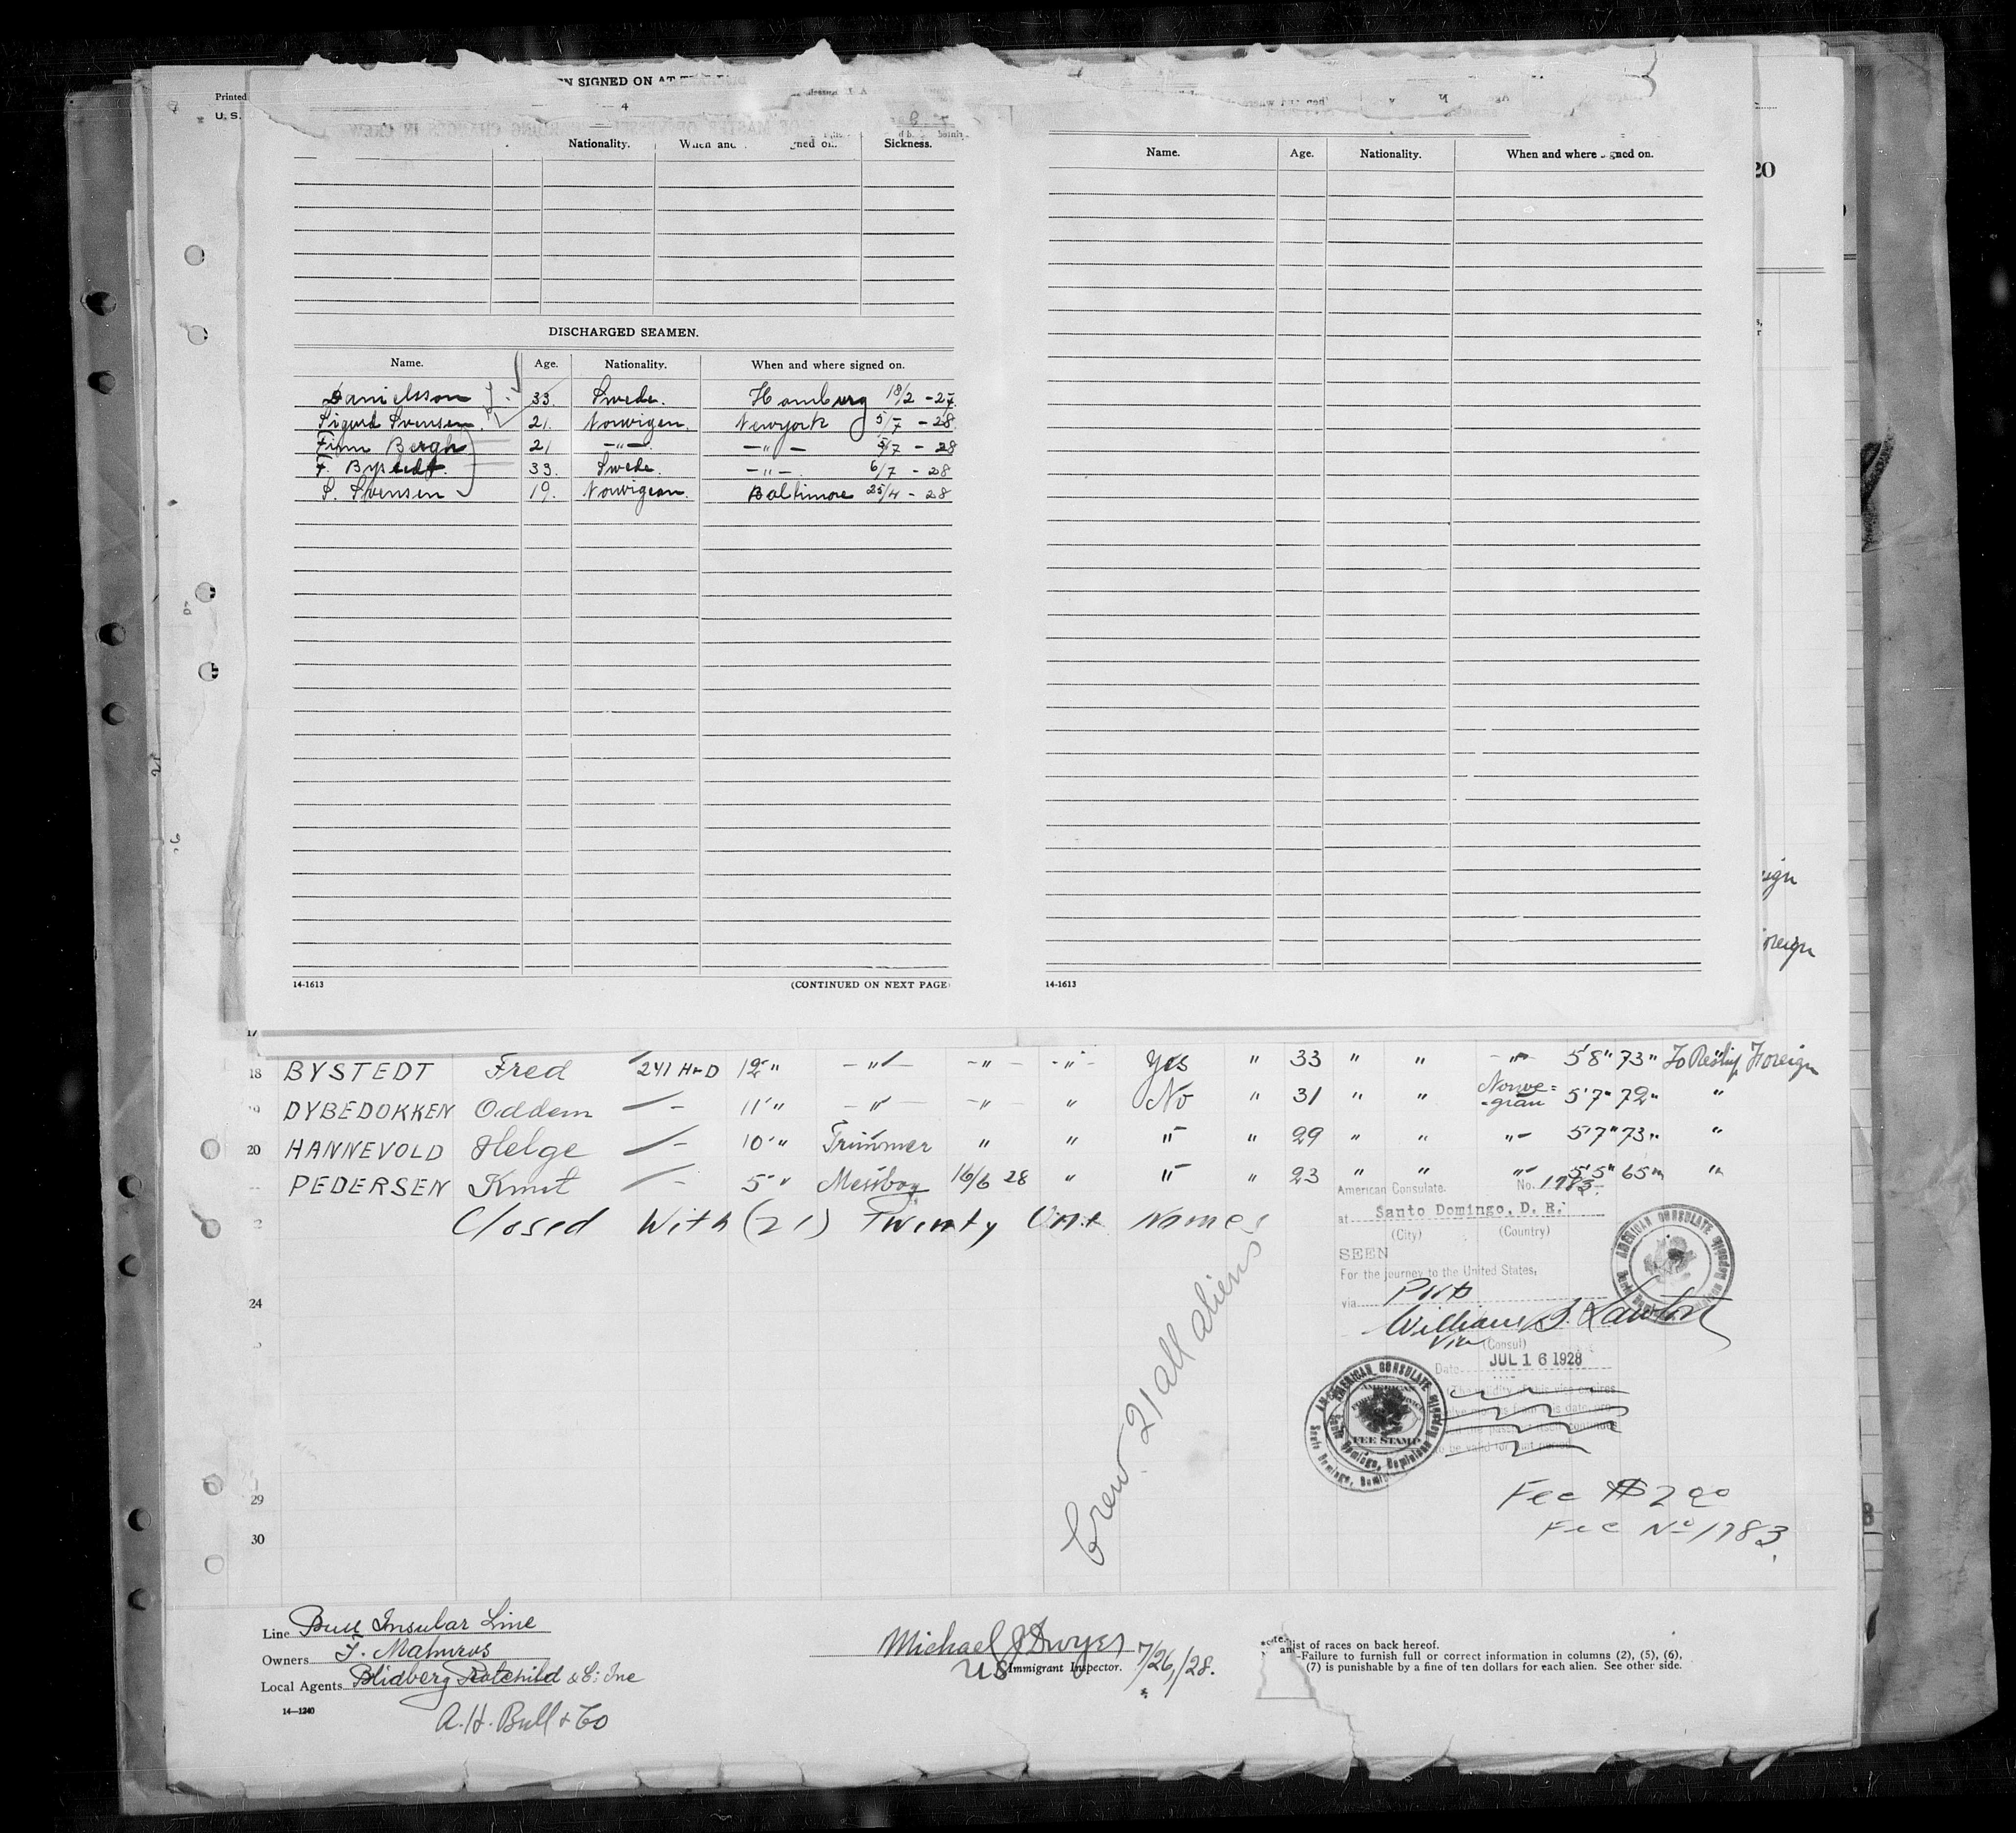 Printed
U. S.
N SIGNED ON AT
4
Nationality. When and ned on. Sickness.
DISCHARGED SEAMEN.
Name. Age. Nationality. When and where signed on.
Danielsson 33. Swede. Hamburg 18/2 - 27.
Sigurd Svensen 21. Norwigen. Newyork 5/7 - 28
Finn Bergh 21 -"- -"- 5/7 - 28
F. Bystedt. 33. Swede. -"- 6/7 - 28
S. Svensen 19. Norwigean. Baltimore 25/4 - 28
14-1613 (CONTINUED ON NEXT PAGE
Name. Age. Nationality. When and where gned on.
14-1613
20
eign
oreign
17
18 BYSTEDT Fred 241 HrD 12 " -"- -"- -"- Yes " 33 " " -"- 5'8" 73" Foreign
19 DYBEDOKKEN Oddem - 11 " -"- -"- " No " 31 " " Norwe=
-gian 5'7" 72" "
20 HANNEVOLD Helge - 10 " Trimmer " " " " 29 " " " 5'7" 73" "
PEDERSEN Knut - 5 " Messboy 16/6 28 " " " 23 " " " 5'5" 65" "
2 Closed With (21) Twenty One Names
American Consulate. No. 1783
at Santo Domingo, D. R.
(City) (Country)
SEEN
For the journey to the United States,
via
William B. Lawton
Vice (Consul)
Date JUL 16 1928
AMERICAN CONSULATE
AMERICAN CONSULATE
FEE STAMP
Santo Domingo, Dominican
24
29
30
Crew 21 all aliens
Fee $2 00
Fee No 1783
Line Bull Insular Line
Owners
Local Agents Blidberg Rotchild & Co; Inc
14—1240
A. H. Bull & Co
Michael J Dwyer
US Immigrant Inspector. 7/26/28.
list of races on back hereof.
-Failure to furnish full or correct information in columns (2), (5), (6),
(7) is punishable by a fine of ten dollars for each alien. See other side.